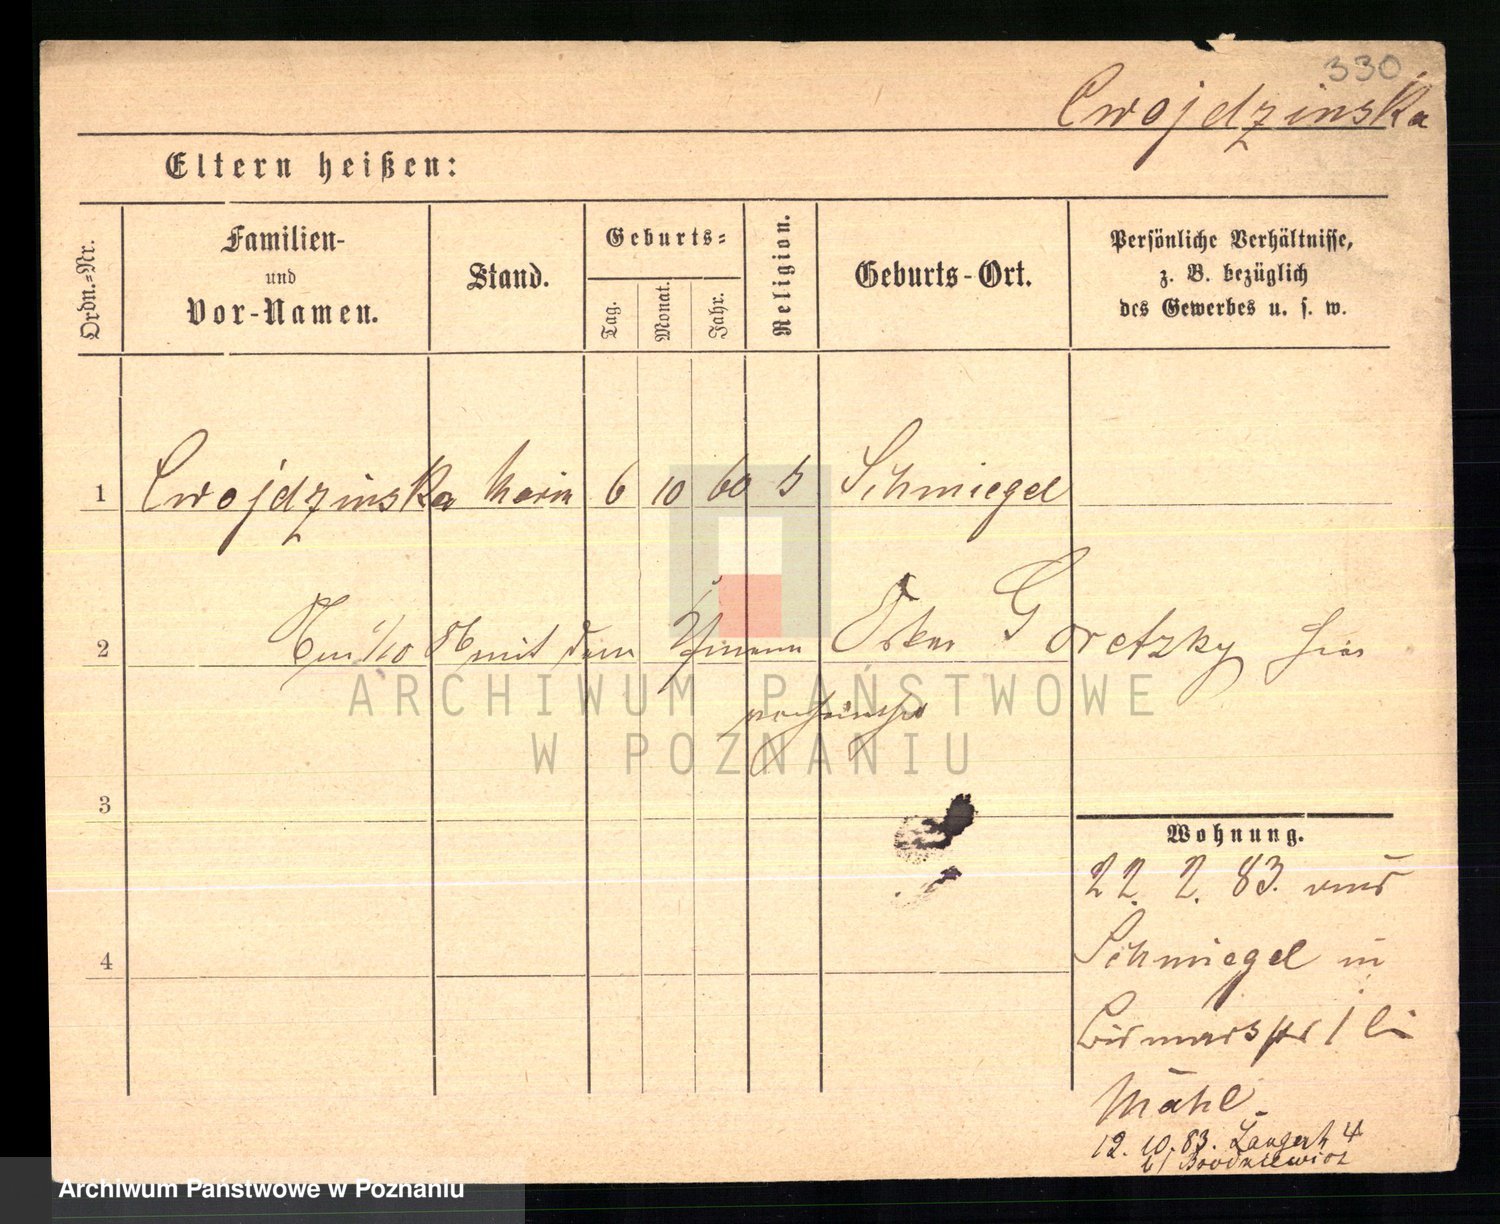 330
Cwojdzinska
Eltern heißen:
Ordn.-Nr.
Familien-
und
Vor-Namen.
Stand.
Geburts-
Tag.
Monat.
Jahr.
Religion.
Geburts-Ort.
Persönliche Verhältnisse,
z. B. bezüglich
des Gewerbes u. s. w.
1 Cwojdzinska Maria 6 10 60 Schmiegel
2 mit dem Oskar Goretzky hier
3
4
Wohnung.
22. 2. 83. aus
Schmiegel in
Bismarckstr 1 bei
Mähl.
12. 10. 83. Langestr 4
b/
ARCHIWUM PAŃSTWOWE
W POZNANIU
Archiwum Państwowe w Poznaniu